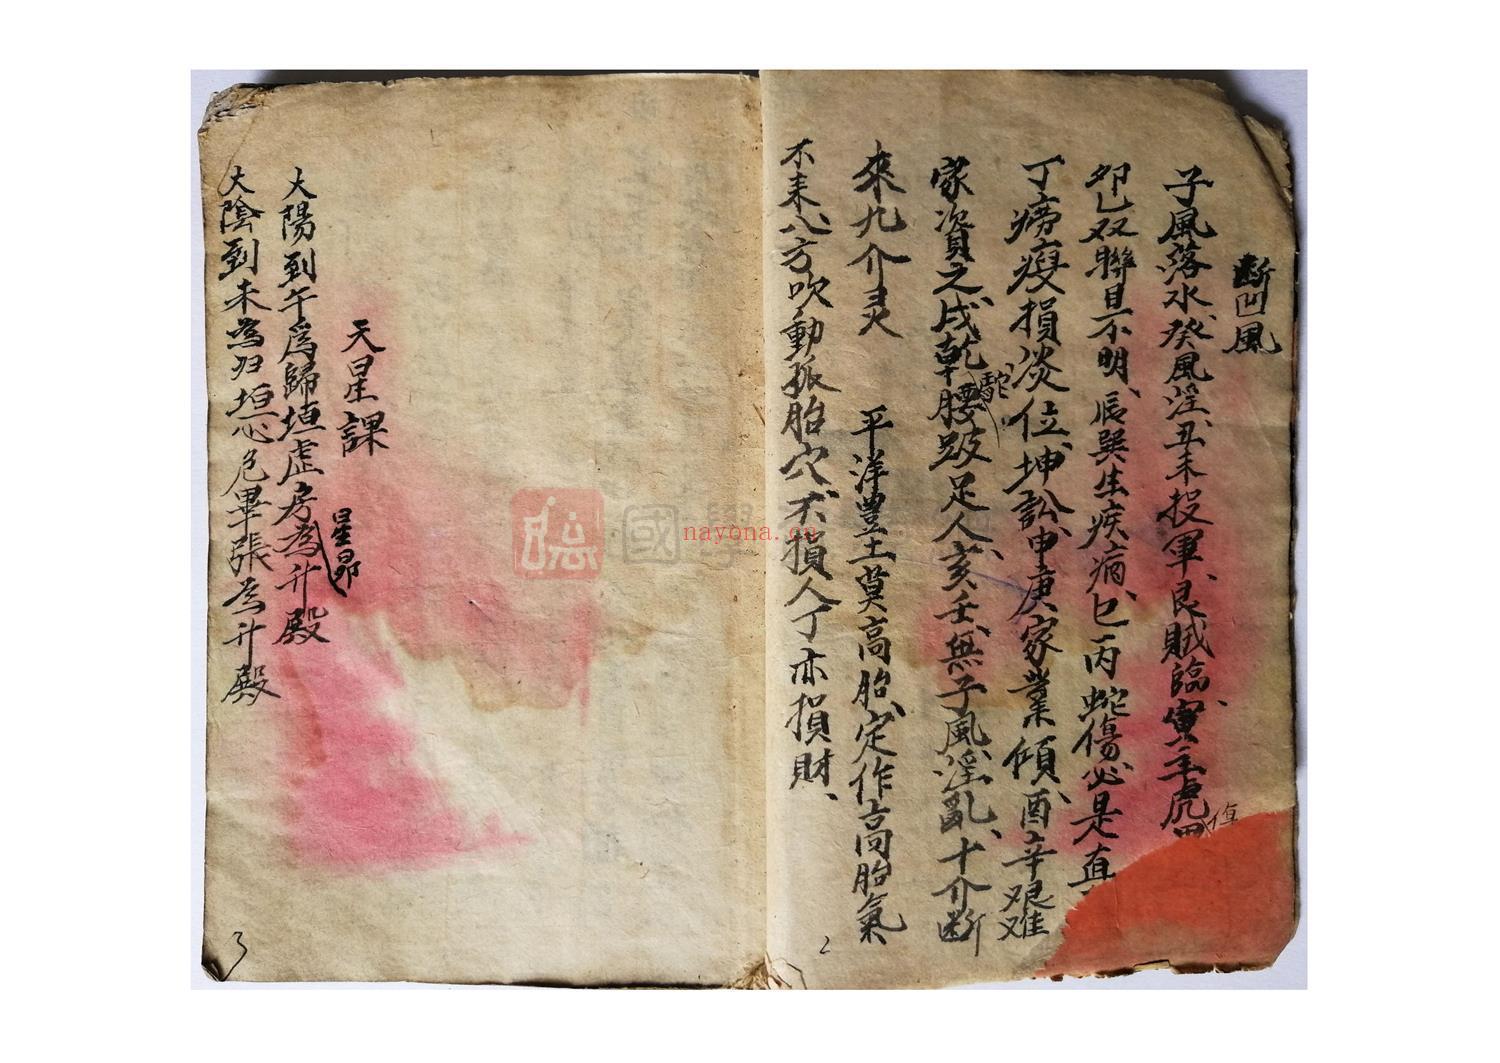 断凹風
子風落水、癸風淫、丑未投軍、艮賊臨、寅主虎
卯乙双聯目不明、辰巽生疾病、巳丙蛇傷必是真
丁痨瘦損淡位、坤訟、申庚家業傾、酉辛艰难
家資乏、戌乾腰跛足人、亥壬無子風淫乱、十介断
來九介灵
平洋豊土莫高胎、定作高胎氣
不来、八方吹動孤胎穴、不損人丁亦損財、
2
天星課
大陽到午為歸垣虛房為升殿
星昴
大陰到未為归垣心危畢張為升殿
3
國學
nayona.cn